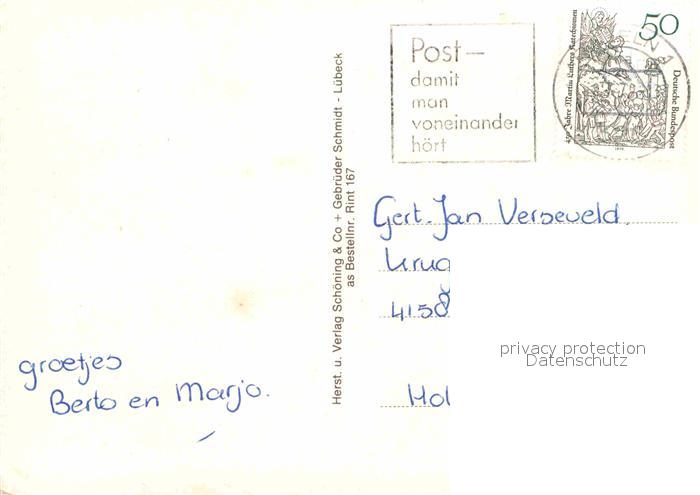 Post—
damit
man
voneinander
hört
50
Deutsche Bundespost
Jahre Martin Luthers Katechismus
Herst. u. Verlag Schöning & Co + Gebrüder Schmidt - Lübeck
as Bestellnr. Rint 167
Gert-Jan Verseveld.
4158
Hol
privacy protection
Datenschutz
groetjes
Berto en Marjo.